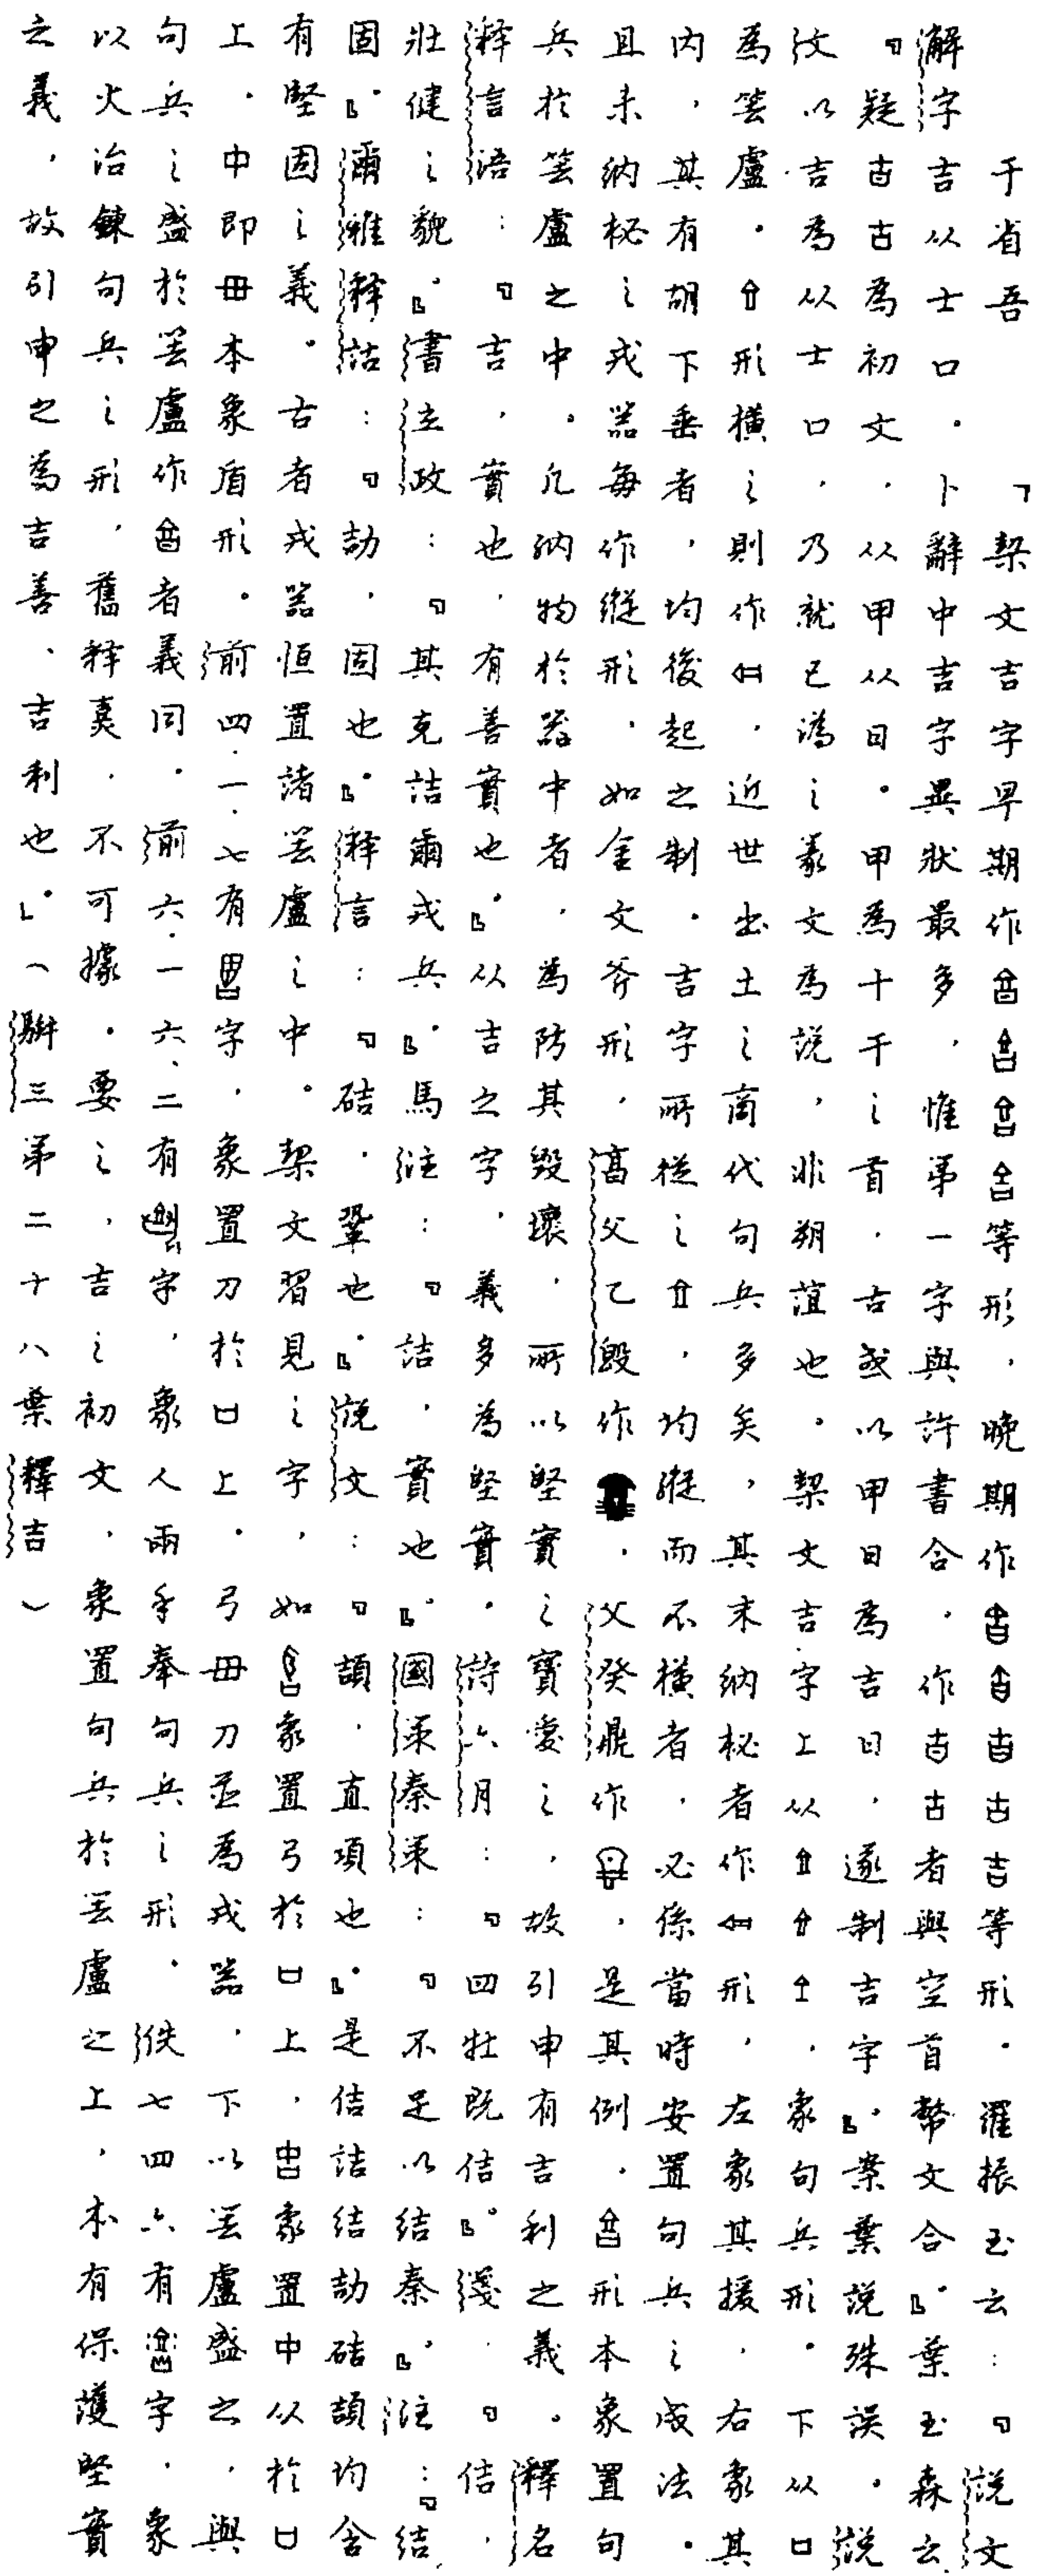 于省吾 「栔文吉字早期作等形，晚期作等形．羅振玉云：『說文
解字吉从士口．卜辭中吉字異狀最多，惟弟一字與許書合．作者與空首幣文合．』葉玉森云
『疑古為初文，从甲从日．甲為十干之首．古或以甲日為吉日，遂制吉字．』案葉說殊誤．說
文以吉為从士口，乃就已譌之篆文為說，非朔誼也．栔文吉字上从，象句兵形．下从口
為笑盧．形橫之則作，近世出土之商代句兵多矣，其末納柲者作形，左象其援，右象其
內，其有胡下垂者，均後起之制．吉字所從之，均縱而不橫者，必係當時安置句兵之成法．
且未納柲之戎器每作縱形，如金文斧形，父乙𣪘作，父癸鼎作，是其例．形本象置句
兵於笑盧之中．凡納物於器中者，為防其毀壞，所以堅實之寶愛之，故引申有吉利之義．釋名
释言語：『吉，實也，有善實也．』从吉之字，義多為堅實．詩六月：『四牡既佶．』箋．『佶，
壯健之貌．』書立政：『其克詰爾戎兵．』馬注：『詰，實也．』國策秦策：『不足以結秦．』注：『結，
固．』爾雅释詁：『劼，固也．』释言：『硈．鞏也．』說文：『頡．直項也．』是佶詰結劼硈頡均含
有堅固之義．古者戎器恒置諸笑盧之中．栔文習見之字，如象置弓於口上，象置中从於口
上．中即毌本象盾形．前四．一．七有字，象置刀於口上．弓毌刀並為戎器，下以笑盧盛之，與
句兵之盛於笑盧作者義同．前六．一六．二有字，象人兩手奉句兵之形．佚七四六有字，象
以火冶鍊句兵之形，舊释𡙕，不可據．要之，吉之初文，象置句兵於笑盧之上，本有保護堅實
之義，故引申之為吉善、吉利也．」（駢三第二十八葉釋吉）